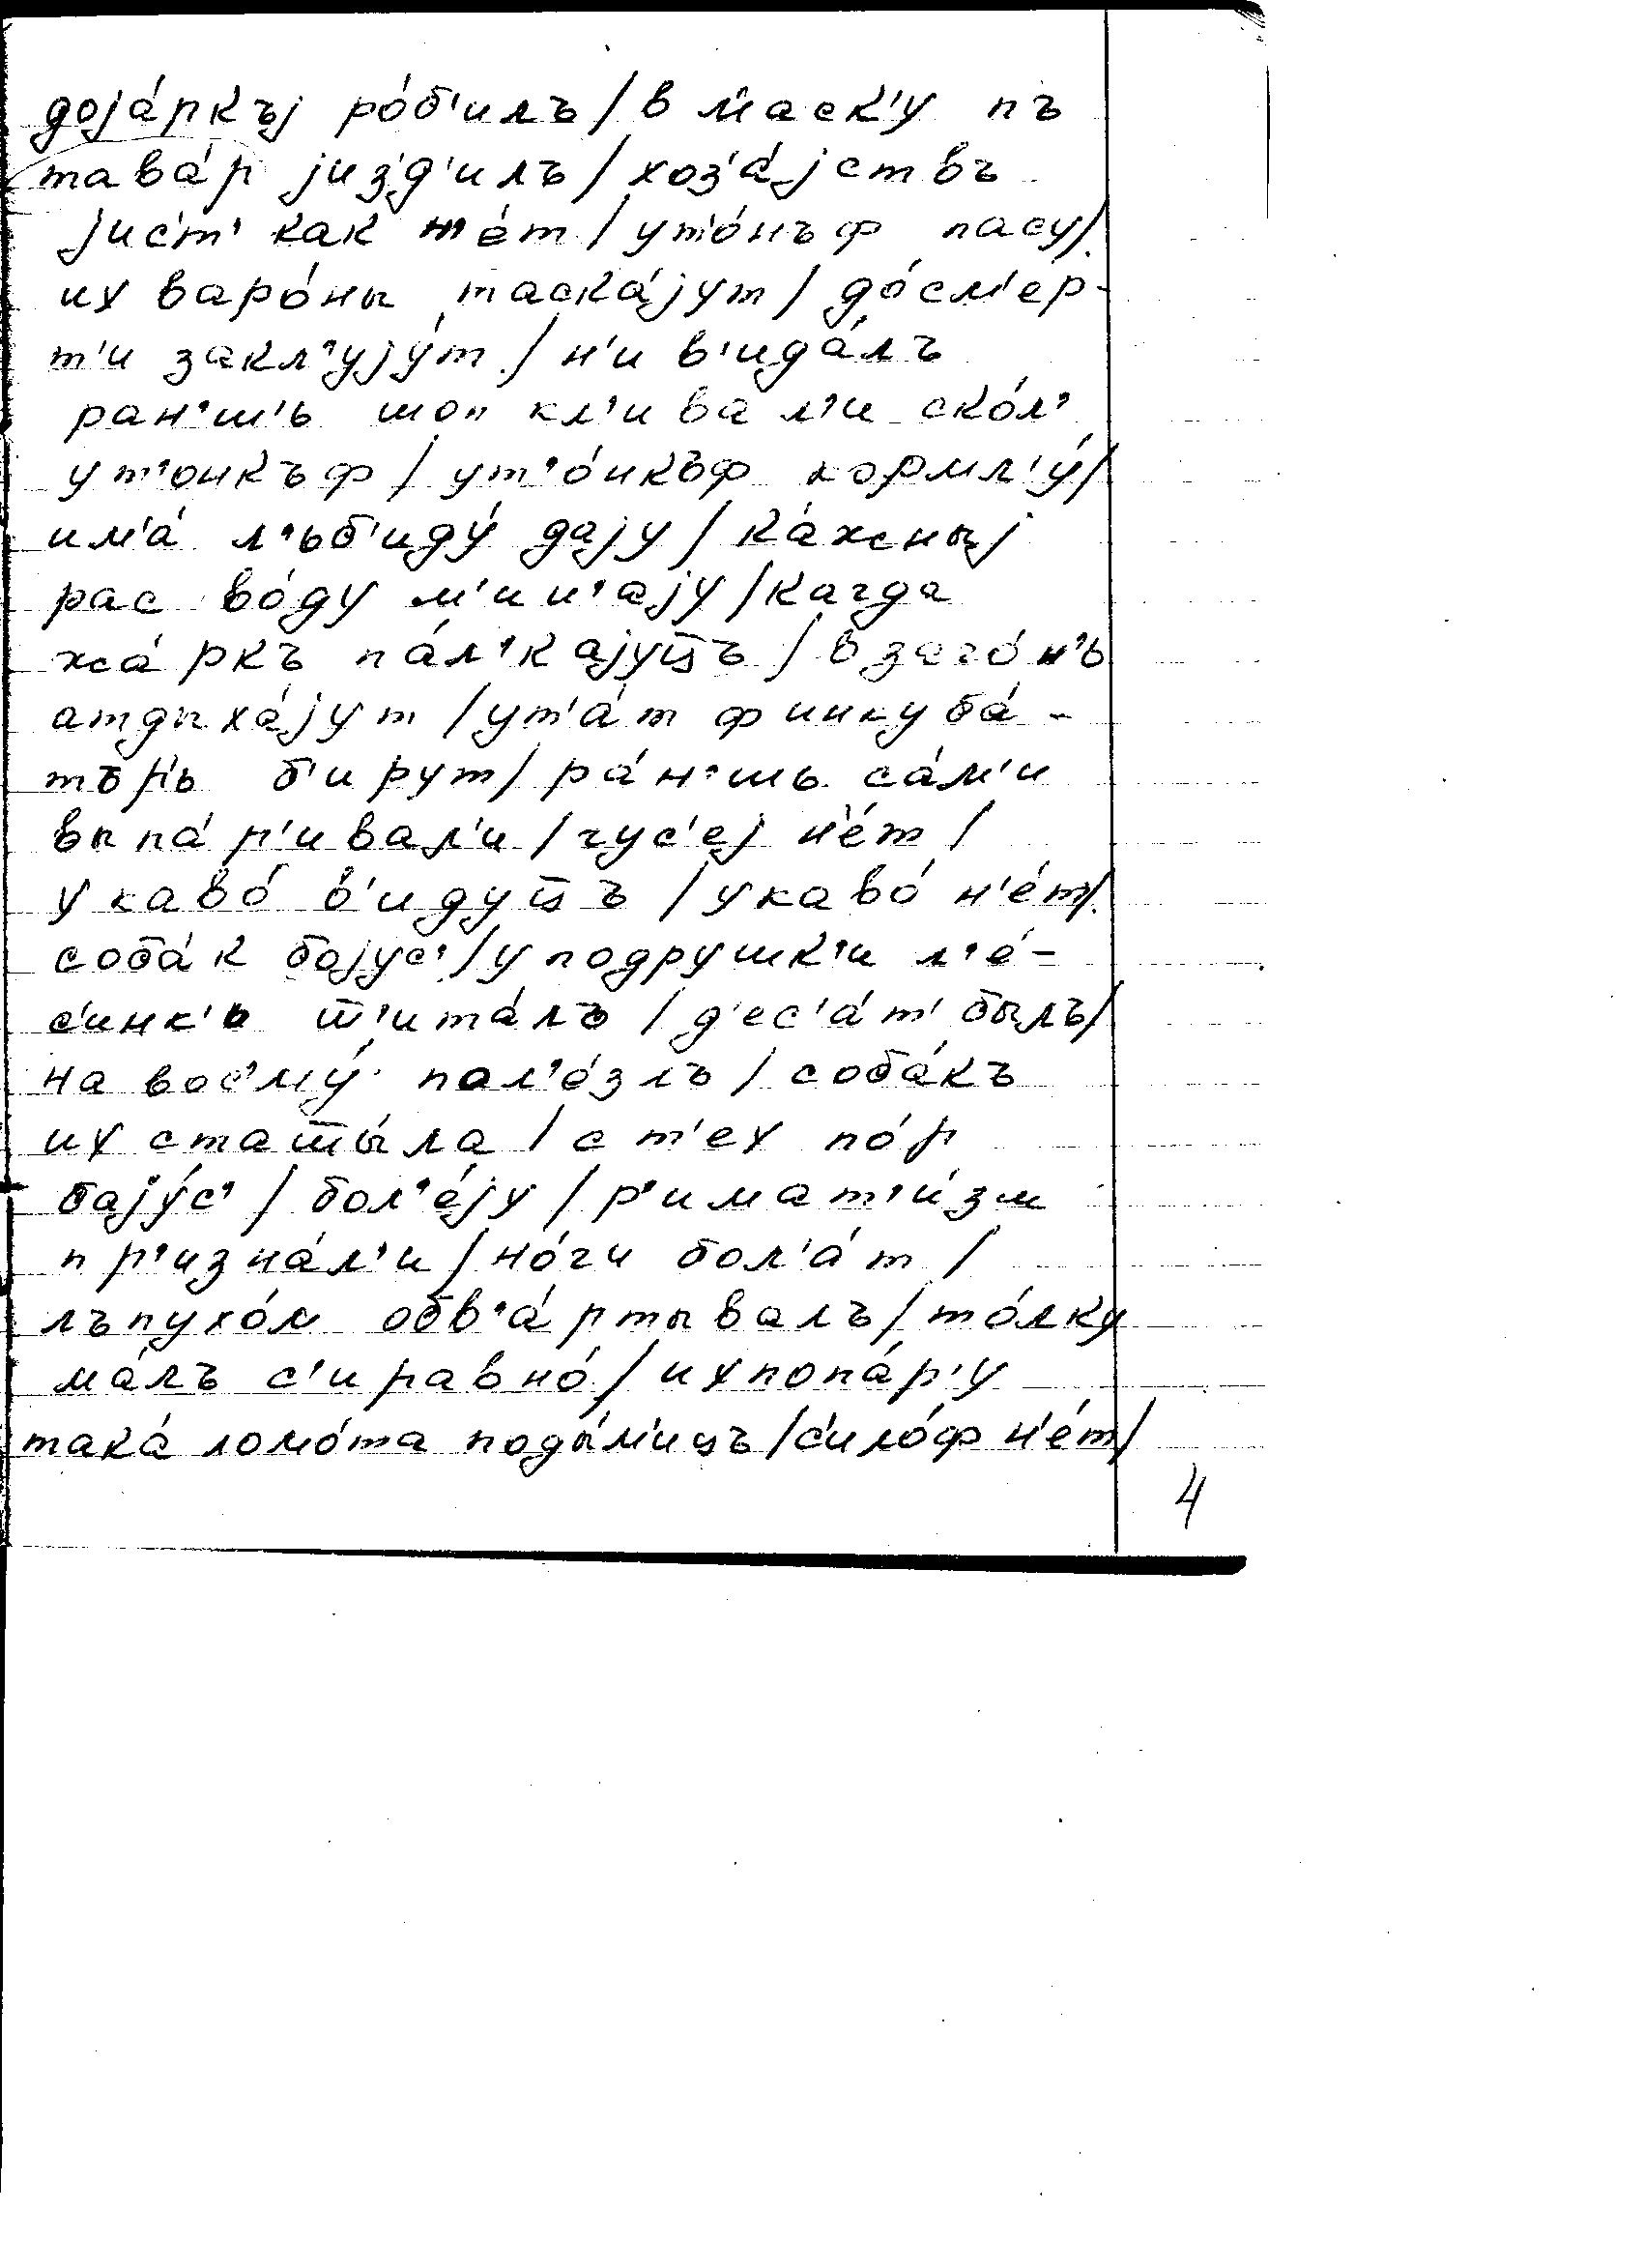 доја́ркъј ро́б'илъ / в маск'у пъ
тава́р јиз'д'илъ / хоз'а́јствъ
јис'т' как н'е́т / ут'о́нъф пасу /
их варо́ны таска́јут / до́см'ер-
т'и закл'ују́т / н'и в'ида́лъ
ран'ш'ь шоп кл'ивал'и ско́л'
ут'онкъф / ут'о́нкъф кормл'у́ /
им'а́ л'ьб'иду́ дају / ка́жныј
рас во́ду м'ин'ају / кагда
жа́ркъ па́л'кајуц̄ъ / в заго́н'ь
атдыха́јут / ут'а́т ф инкуба́-
тър'ь б'ирут / ра́н'шь са́м'и
выпа́р'ивал'и / гус'еј н'е́т /
у каво́ в'идуц̄ъ / у каво́ н'е́т /
соба́к бојус' / у подрушк'и л'е́-
с'инк'ь ш̄'ита́лъ / д'ес'а́т' былъ /
на вос'му́ пол'е́злъ / соба́къ
их сташ̄ы́ла / с т'ех по́р
бају́с' / бол'е́ју / р'имат'и́зм
пр'изна́л'и / но́ги бол'а́т /
лъпухо́м обв'а́ртывалъ / то́лку
ма́лъ с'иравно́ / их попа́р'у
така́ ломо́та поды́м'иц̄ъ / с'ило́ф н'е́т /
4